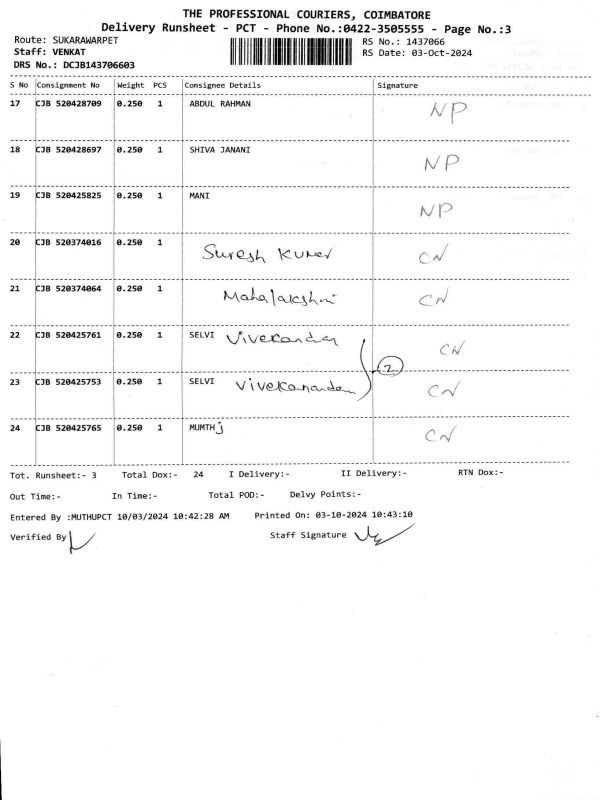 THE PROFESSIONAL COURIERS, COIMBATORE
Delivery Runsheet - PCT - Phone No.:0422-3505555 - Page No.:3
Route: SUKARAWARPET RS No.: 1437066
Staff: VENKAT RS Date: 03-Oct-2024
DRS No.: DCJB143706603
S No Consignment No Weight PCS Consignee Details Signature
17 CJB 520428709 0.250 1 ABDUL RAHMAN NP
18 CJB 520428697 0.250 1 SHIVA JANANI NP
19 CJB 520425825 0.250 1 MANI NP
20 CJB 520374016 0.250 1 Suresh Kumar CN
21 CJB 520374064 0.250 1 Mahalakshmi CN
22 CJB 520425761 0.250 1 SELVI CN
2
23 CJB 520425753 0.250 1 SELVI Vivekanandan CN
24 CJB 520425765 0.250 1 MUMTHj CN
Tot. Runsheet:- 3 Total Dox:- 24 I Delivery:- II Delivery:- RTN Dox:-
Out Time:- In Time:- Total POD:- Delvy Points:-
Entered By :MUTHUPCT 10/03/2024 10:42:28 AM Printed On: 03-10-2024 10:43:10
Verified By Staff Signature